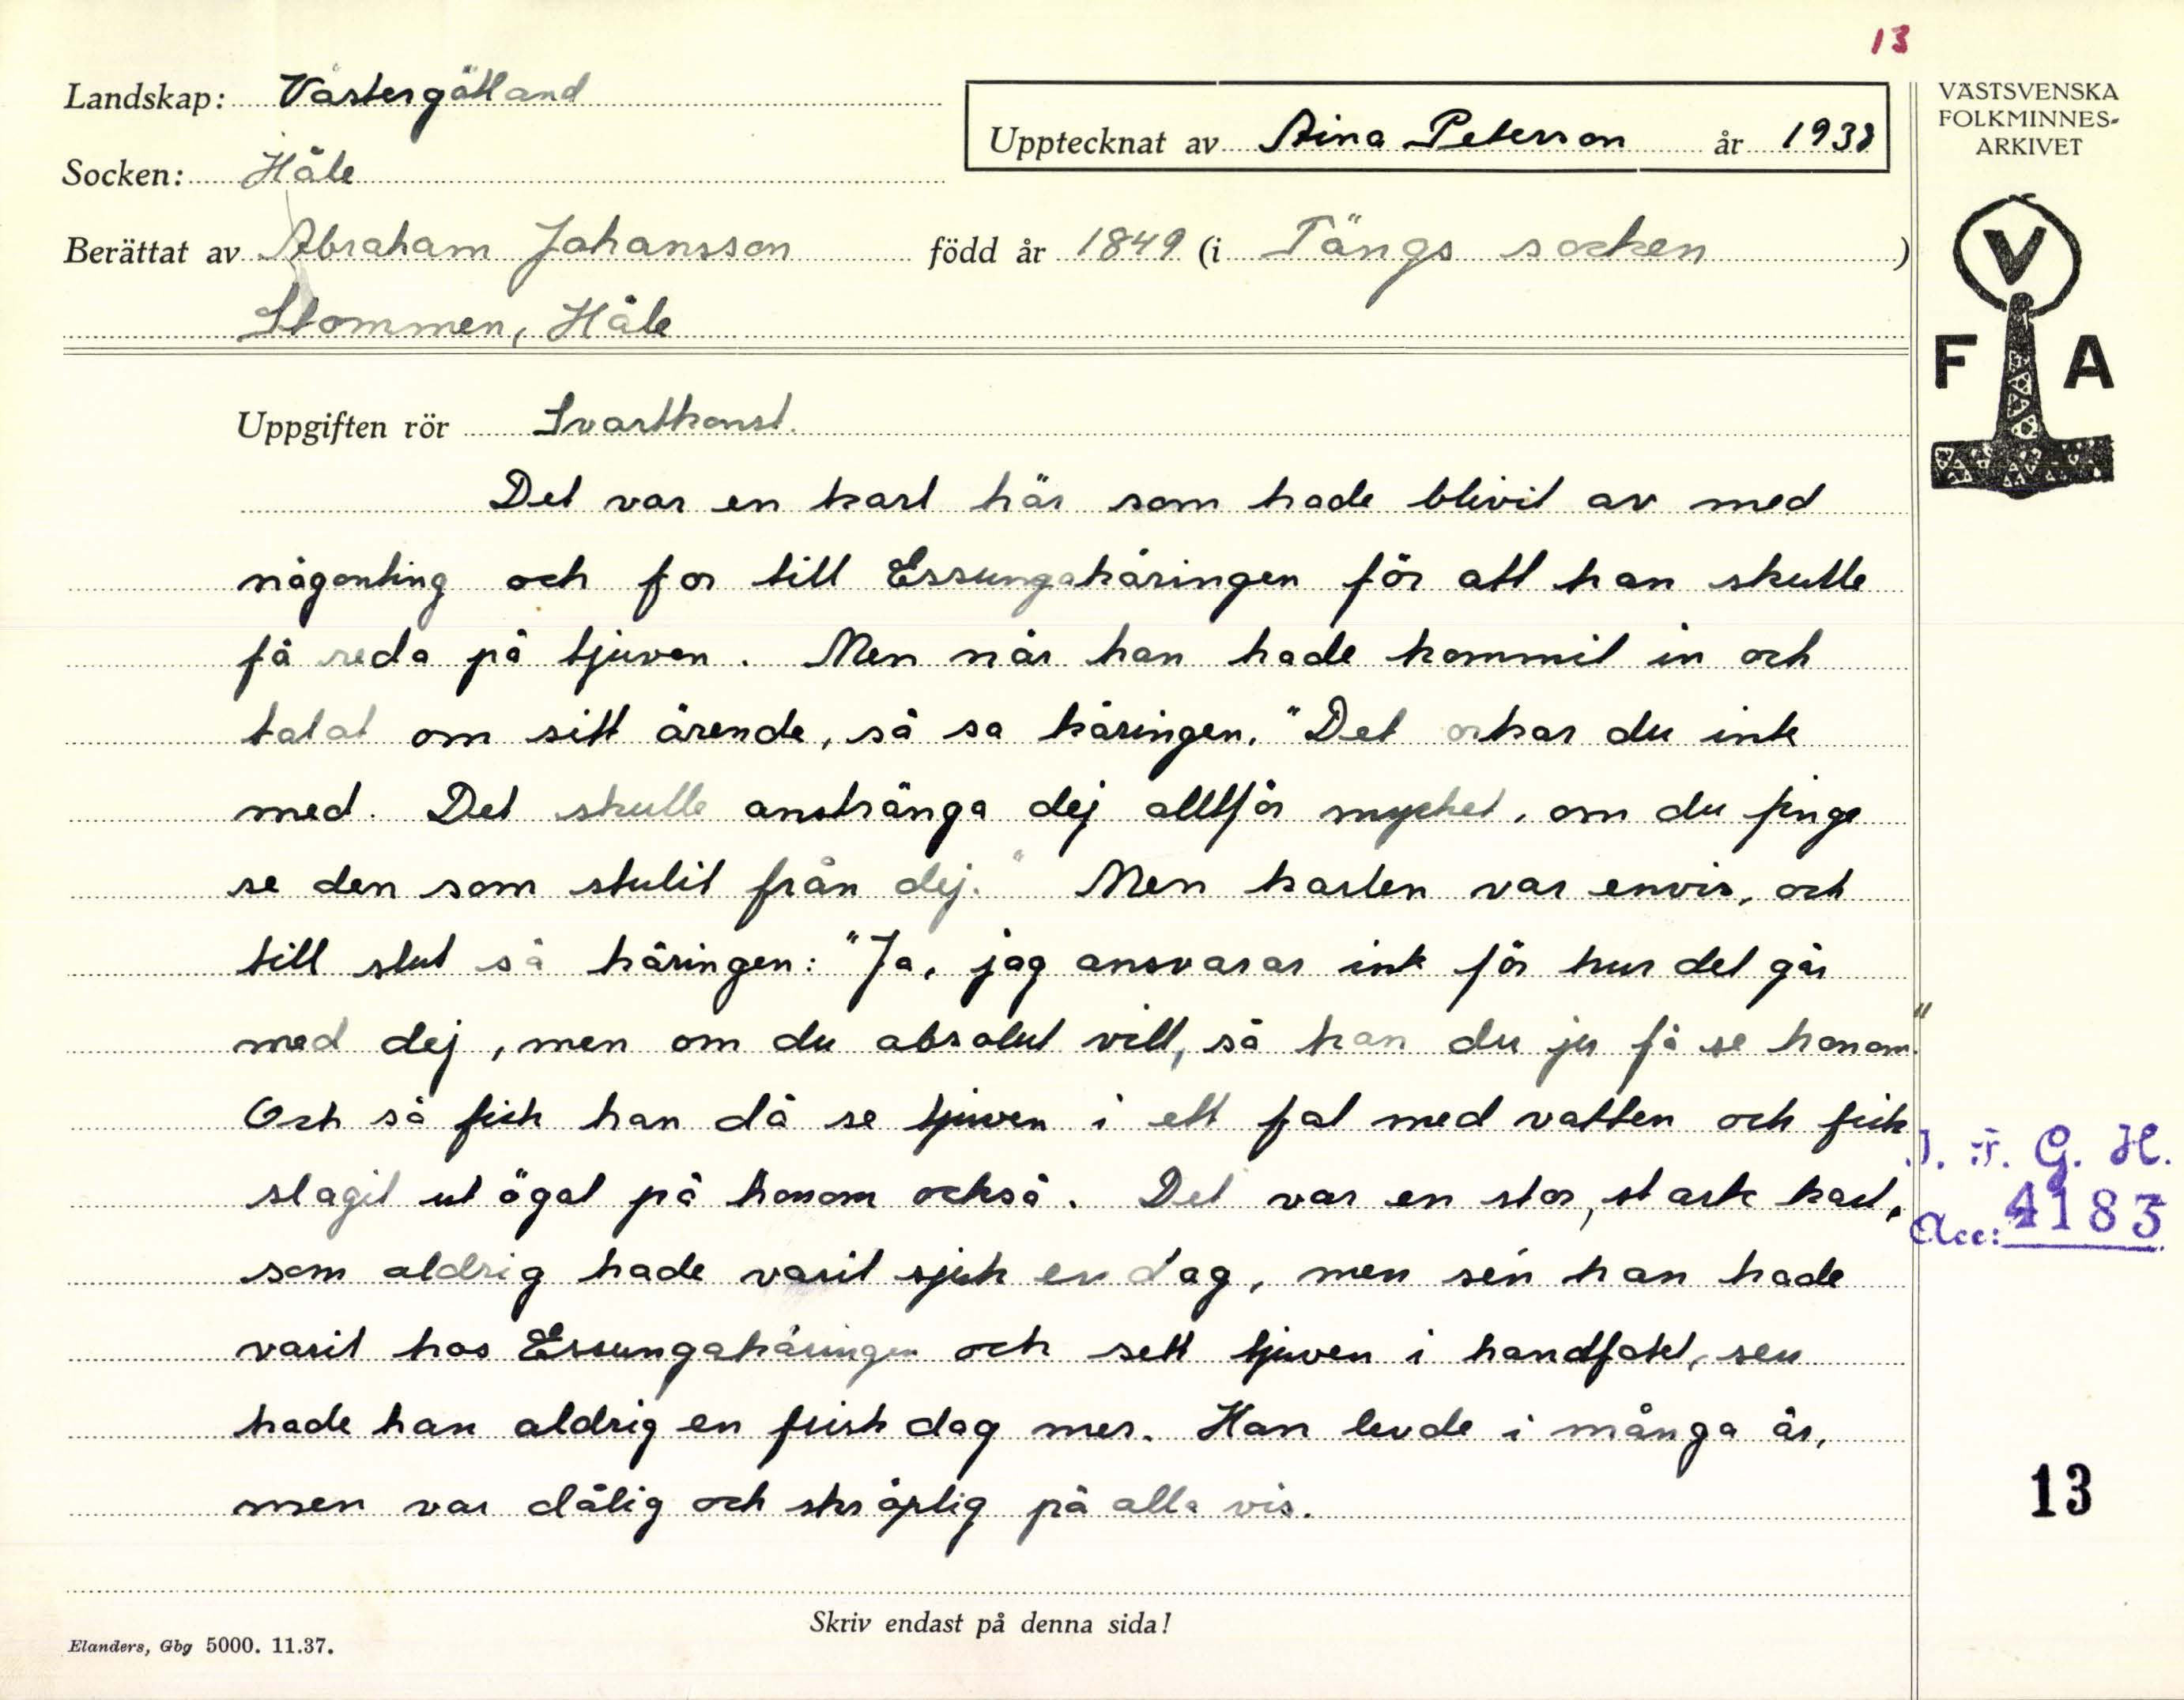 13
Landskap: Västergötland
Upptecknat av Aina Peterson år 1938
VÄSTSVENSKA
FOLKMINNES-
ARKIVET
Socken: Håle
Berättat av Abraham Johansson född år 1849 (i Tängs socken )
Stommen, Håle
V
F A
Uppgiften rör Svartkonst.
Det var en karl här som hade blivit av med
någonting och for till Essungakäringen för att han skulle
få reda på tjuven. Men när han hade kommit in och
talat om sitt ärende, så sa käringen. "Det orkar du inte
med. Det skulle anstränga dej alltför mycket, om du finge
se den som stulit från dej." Men karlen var envis, och
till slut sa käringen: "Ja, jag ansvarar inte för hur det går
med dej, men om du absolut vill, så kan du ju få se honom."
Och så fick han då se tjuven i ett fat med vatten och fick
slagit ut ögat på honom också. Det var en stor, stark karl,
som aldrig hade varit sjuk en dag, men sén han hade
varit hos Essungakäringen och sett tjuven i handfatet, sen
hade han aldrig en frisk dag mer. Han levde i många år,
men var dålig och skräplig på alla vis.
I. F. G. H.
Acc: 4183
13
Skriv endast på denna sida!
Elanders, Gbg 5000. 11.37.